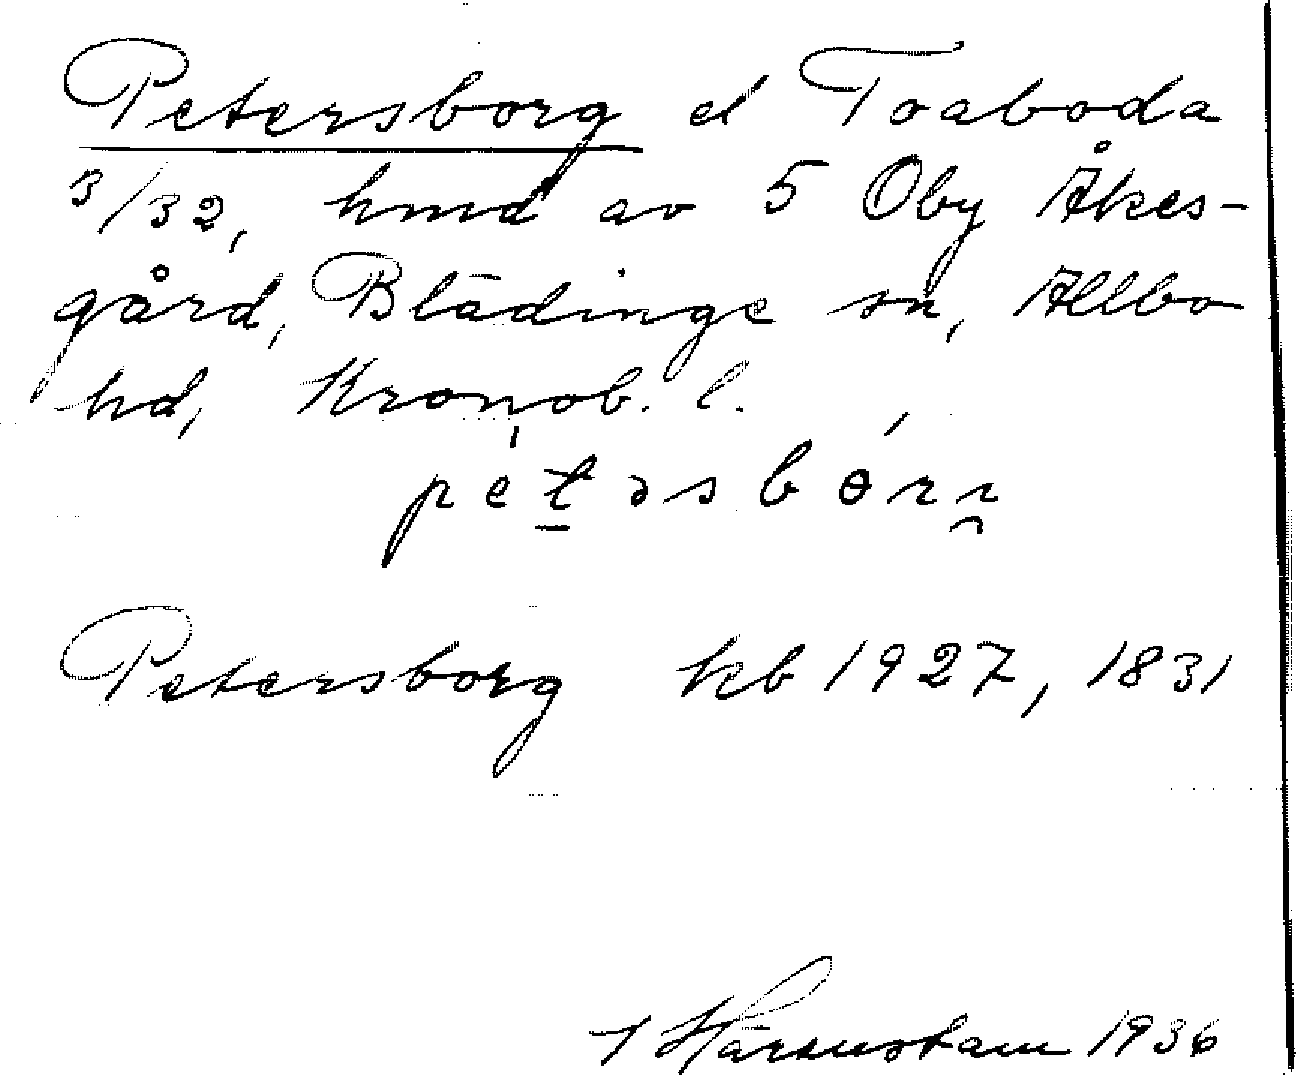 Petersborg el Toaboda
3/32, hmd av 5 Oby Åkes-
gård, Blädinge sn, Allbo
hd, Kronob. l.
pétəsbór
Petersborg kb 1927, 1831
1936